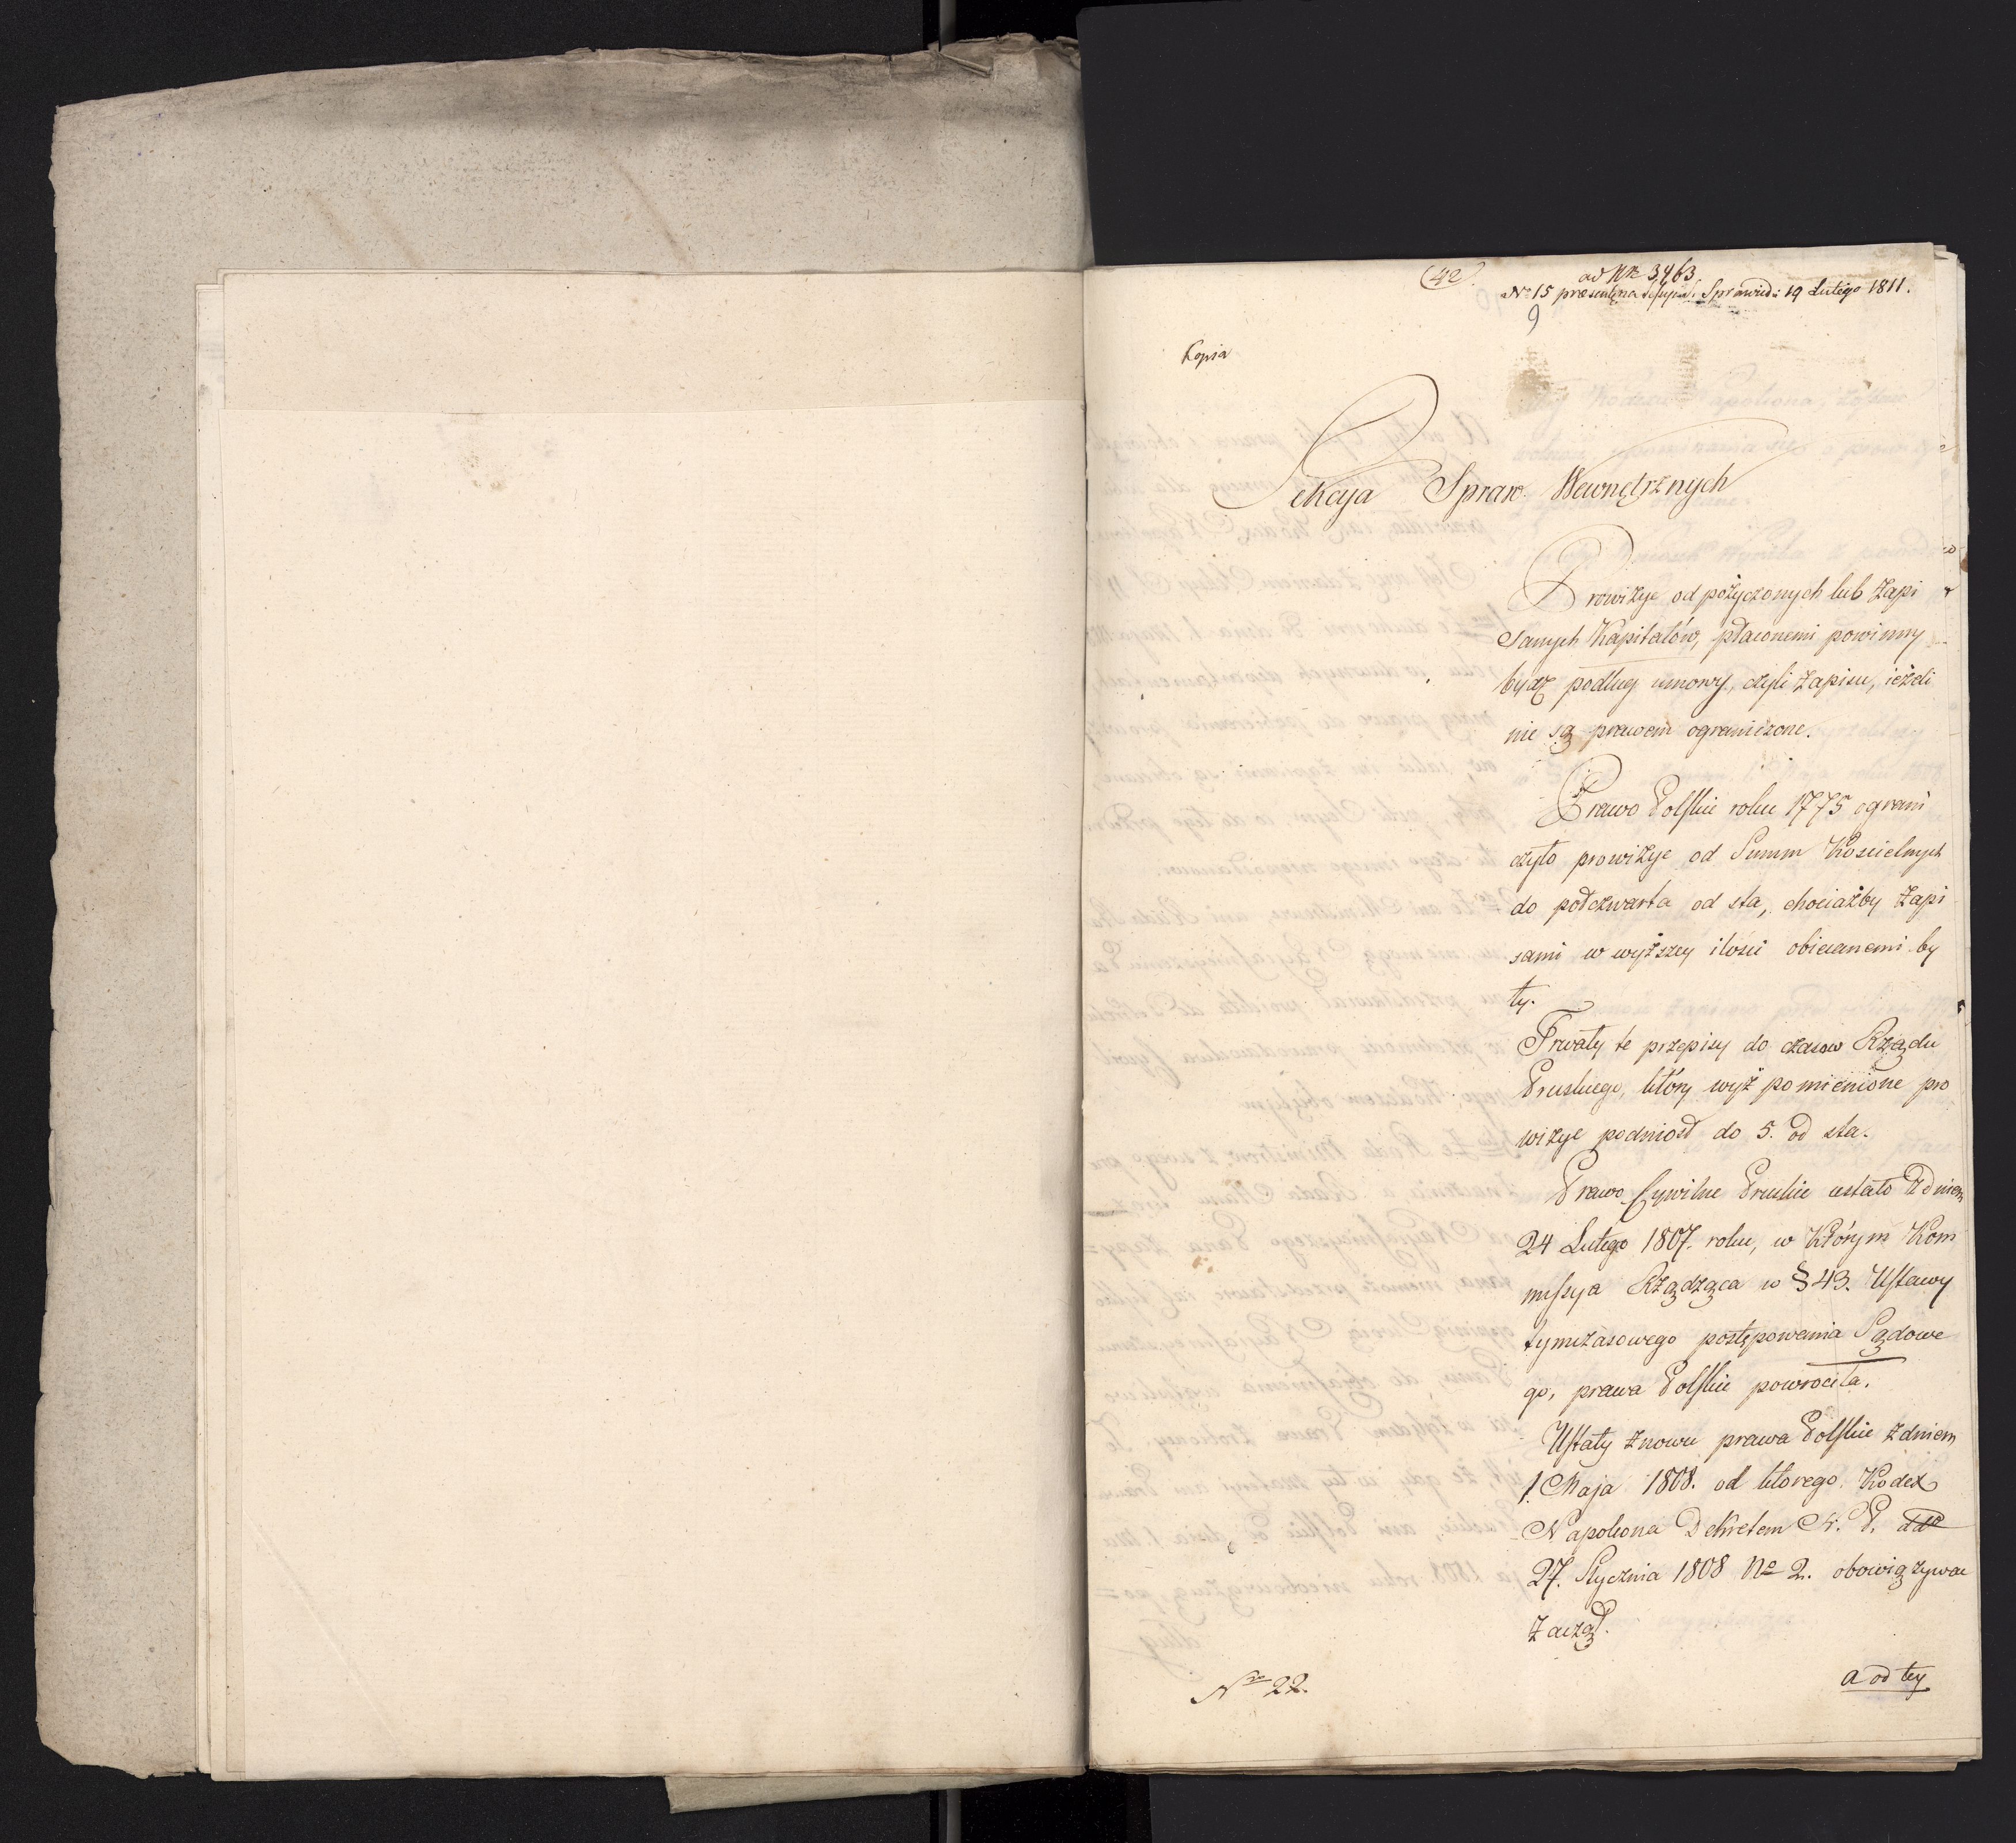 (42)
ad Nr 3463.
No 15 præsent. na Sessyi Sprawied: 19 Lutego 1811.
9
Kopia
Sekcya Spraw Wewnętrznych
Prowizye od pożyczonych lub zapi
sanych Kapitałów, płaconemi powinny
bydź podług umowy, czyli zapisu, ieżeli
nie są prawem ograniczone.
Prawo Polskie roku 1775 ograni
czyło prowizye od Summ Kościelnych
do połczwarta od sta, chociażby zapi
sami w wyższey ilości obiecanemi by
ły.
Trwały te przepisy do czasow Rządu
Pruskiego, który wyż pomienione pro
wizye podniosł do 5. od sta.
Prawo Cywilne Pruskie ustało z dniem
24 Lutego 1807. roku, w którym Kom
missya Rządząca w § 43. Ustawy
tymczasowego postępowania Sądowe
go, prawa Polskie powrociła.
Ustały znowu prawa Polskie z dniem
1. Maja 1808. od ktorego Kodex
Napoleona Dekretem N. P. ddo
27. Stycznia 1808 No 2. obowiązywac
zaczął.
a od tey
Nro 22.